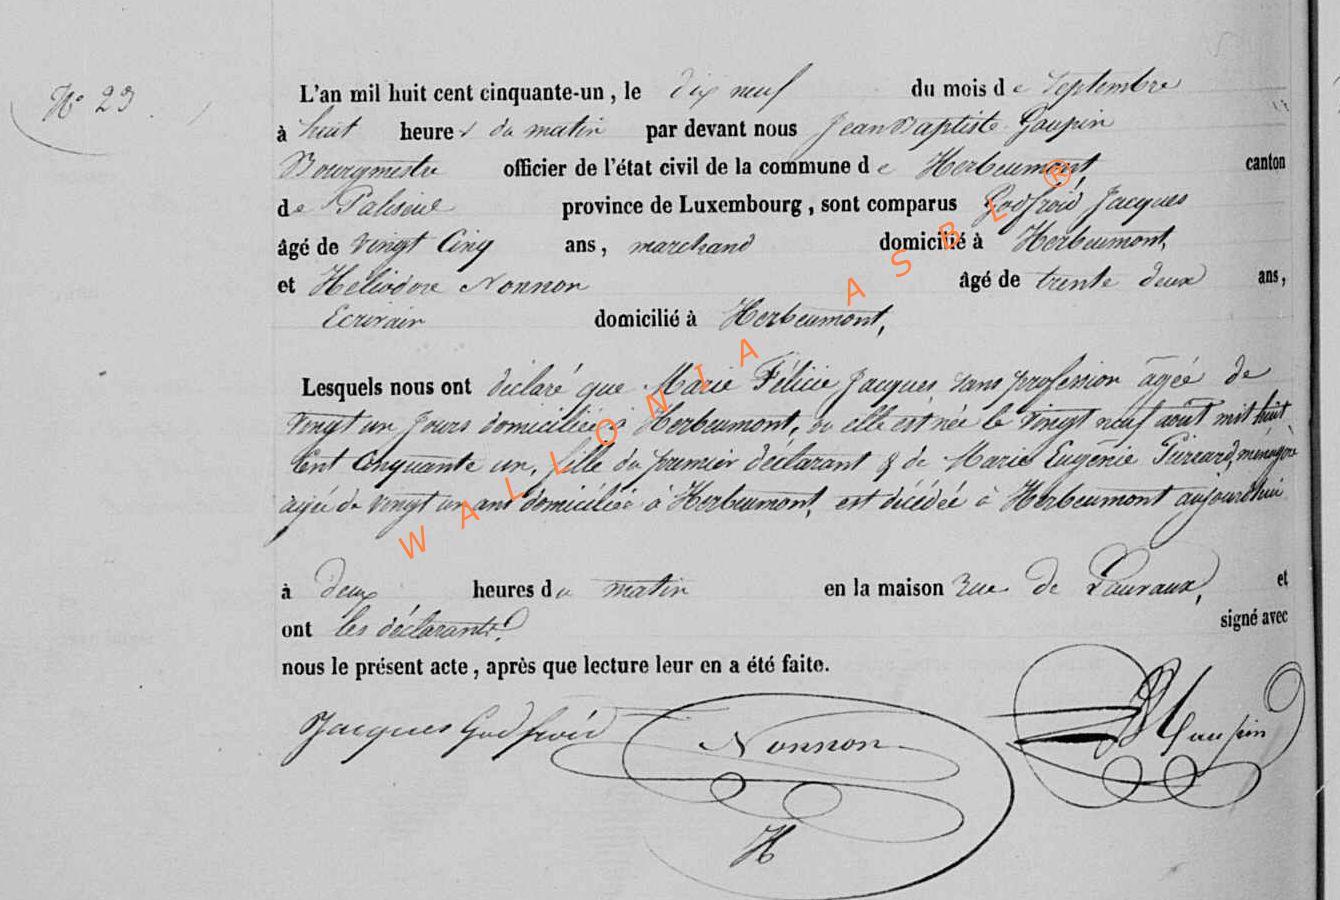 N° 23
L'an mil huit cent cinquante-un, le dix neuf du mois de Septembre
à huit heures du matin par devant nous Jean Baptiste Gaupin
Bourgmestre officier de l'état civil de la commune de Herbeumont, canton
de Paliseul province de Luxembourg, sont comparus Godfroid Jacques
âgé de vingt Cinq ans, marchand domicilié à Herbeumont,
et Héliodore Nonnon âgé de trente deux ans,
Ecrivain domicilié à Herbeumont,
Lesquels nous ont déclaré que Marie Félicie Jacques sans profession agée de
vingt un jours domiciliée à Herbeumont, ou elle est née le vingt neuf août mil huit
Cent Cinquante un, fille du premier déclarant & de Marie Eugénie Pierrard, ménagère
agée de vingt un ans domiciliée à Herbeumont, est décédée à Herbeumont aujourdhui
à deux heures du matin en la maison rue de Lauraux, et
ont les déclarants signé avec
nous le présent acte, après que lecture leur en a été faite.
Jacques Godfroid
Nonnon
H
Gaupin
WALLONIA ASBL ®